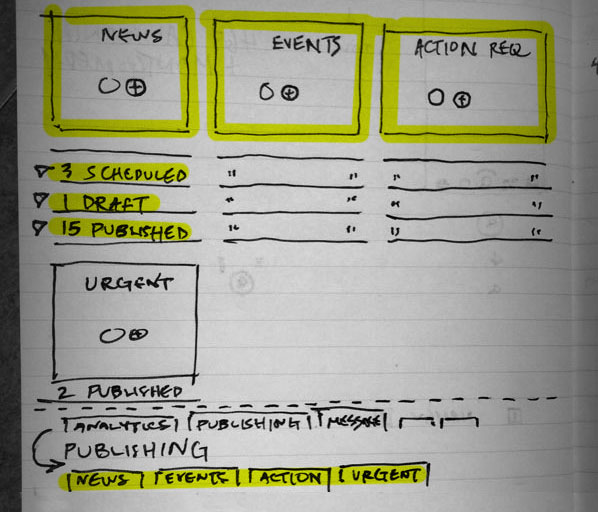 NEWS EVENTS ACTION REQ
3 SCHEDULED " " " "
1 DRAFT " " " "
15 PUBLISHED " " " "
URGENT
2 PUBLISHED
ANALYTICS PUBLISHING MESSAGE
PUBLISHING
NEWS EVENTS ACTION URGENT